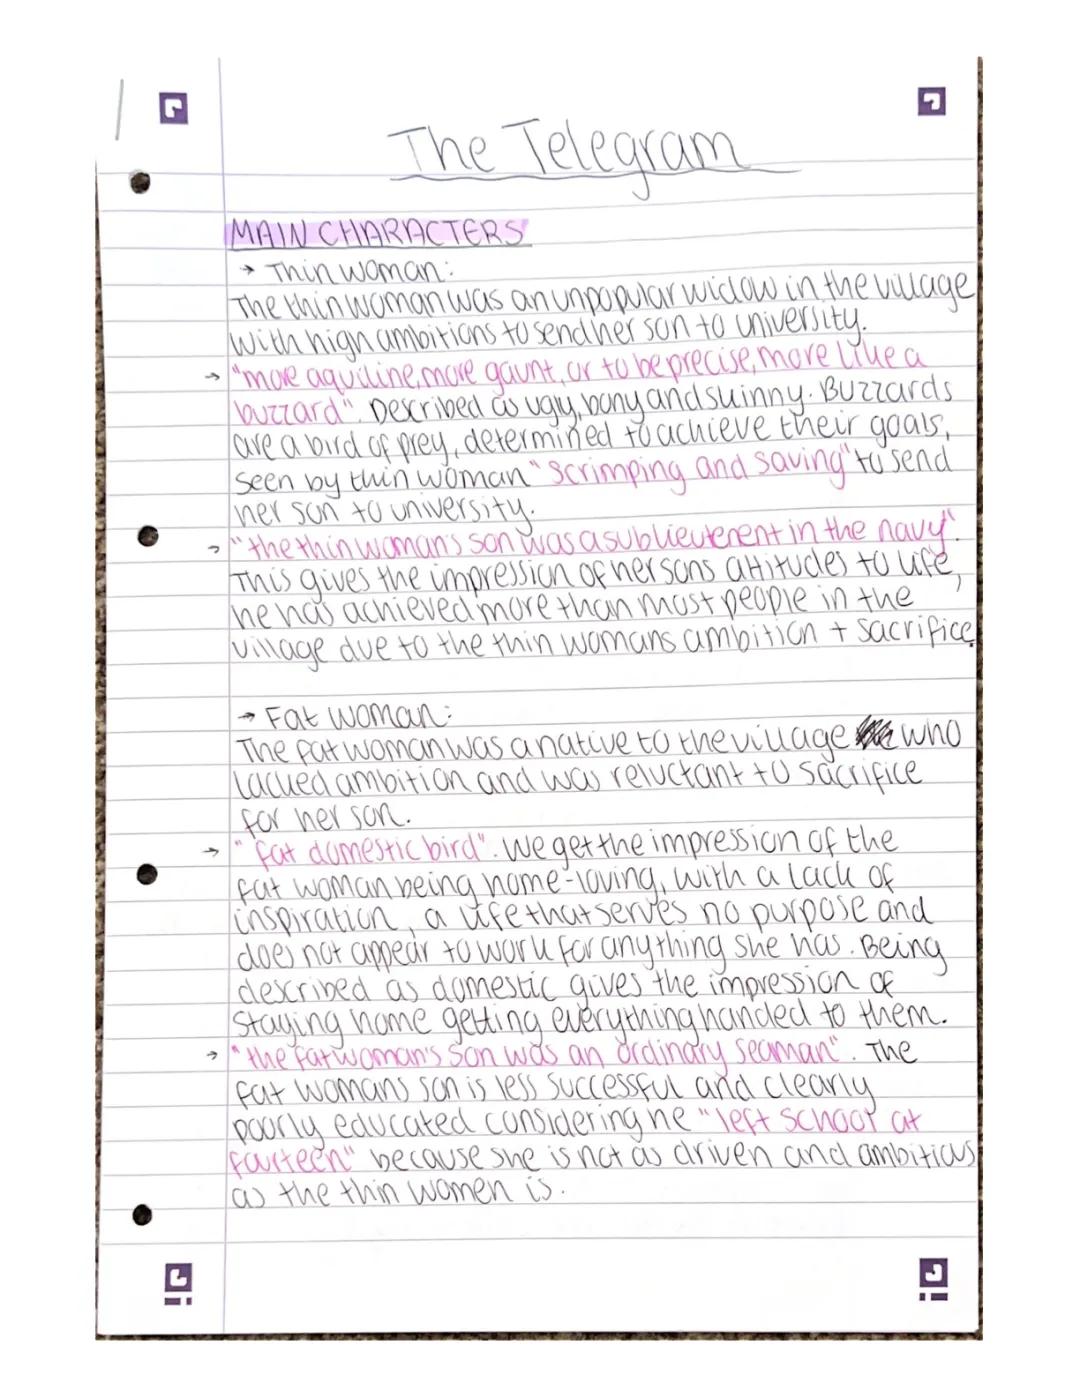 The Telegram
MAIN CHARACTERS
→ Thin woman:
The thin woman was an unpopular widow in the village
with high ambitions to send her son to university.
→ "more aquiline, more gaunt, or to be precise, more like a
buzzard". Described as ugly, bony and skinny. Buzzards
are a bird of prey, determined to achieve their goals,
seen by thin woman "scrimping and saving" to send
her son to university.
→ "the thin woman's son was a sub lieutenent in the navy".
This gives the impression of her sons attitudes to life,
he has achieved more than most people in the
village due to the thin womans ambition + sacrifice.
→ Fat woman:
The fat woman was a native to the village who
lacked ambition and was reluctant to sacrifice
for her son.
→ "fat domestic bird". We get the impression of the
fat woman being home-loving, with a lack of
inspiration, a life that serves no purpose and
does not appear to work for anything she has. Being
described as domestic gives the impression of
staying home getting everything handed to them.
→ "the fat woman's son was an ordinary seaman". The
fat womans son is less successful and clearly
poorly educated considering he "left school at
fourteen" because she is not as driven and ambitious
as the thin women is.